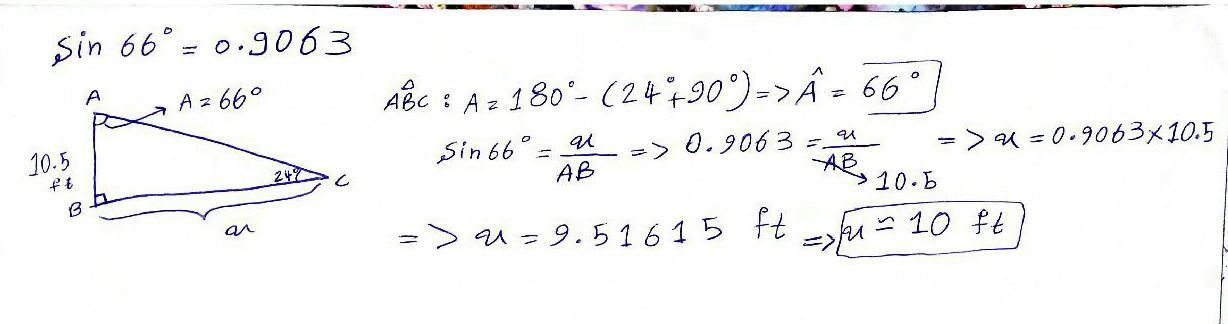 Sin 66° = 0.9063
A
A = 66°
10.5 ft
B
24°
C
x
AB̂C : A = 180° - (24° + 90°) => Â = 66°
Sin 66° = x / AB => 0.9063 = x / AB => x = 0.9063 × 10.5
10.5
=> x = 9.51615 ft => x ≃ 10 ft